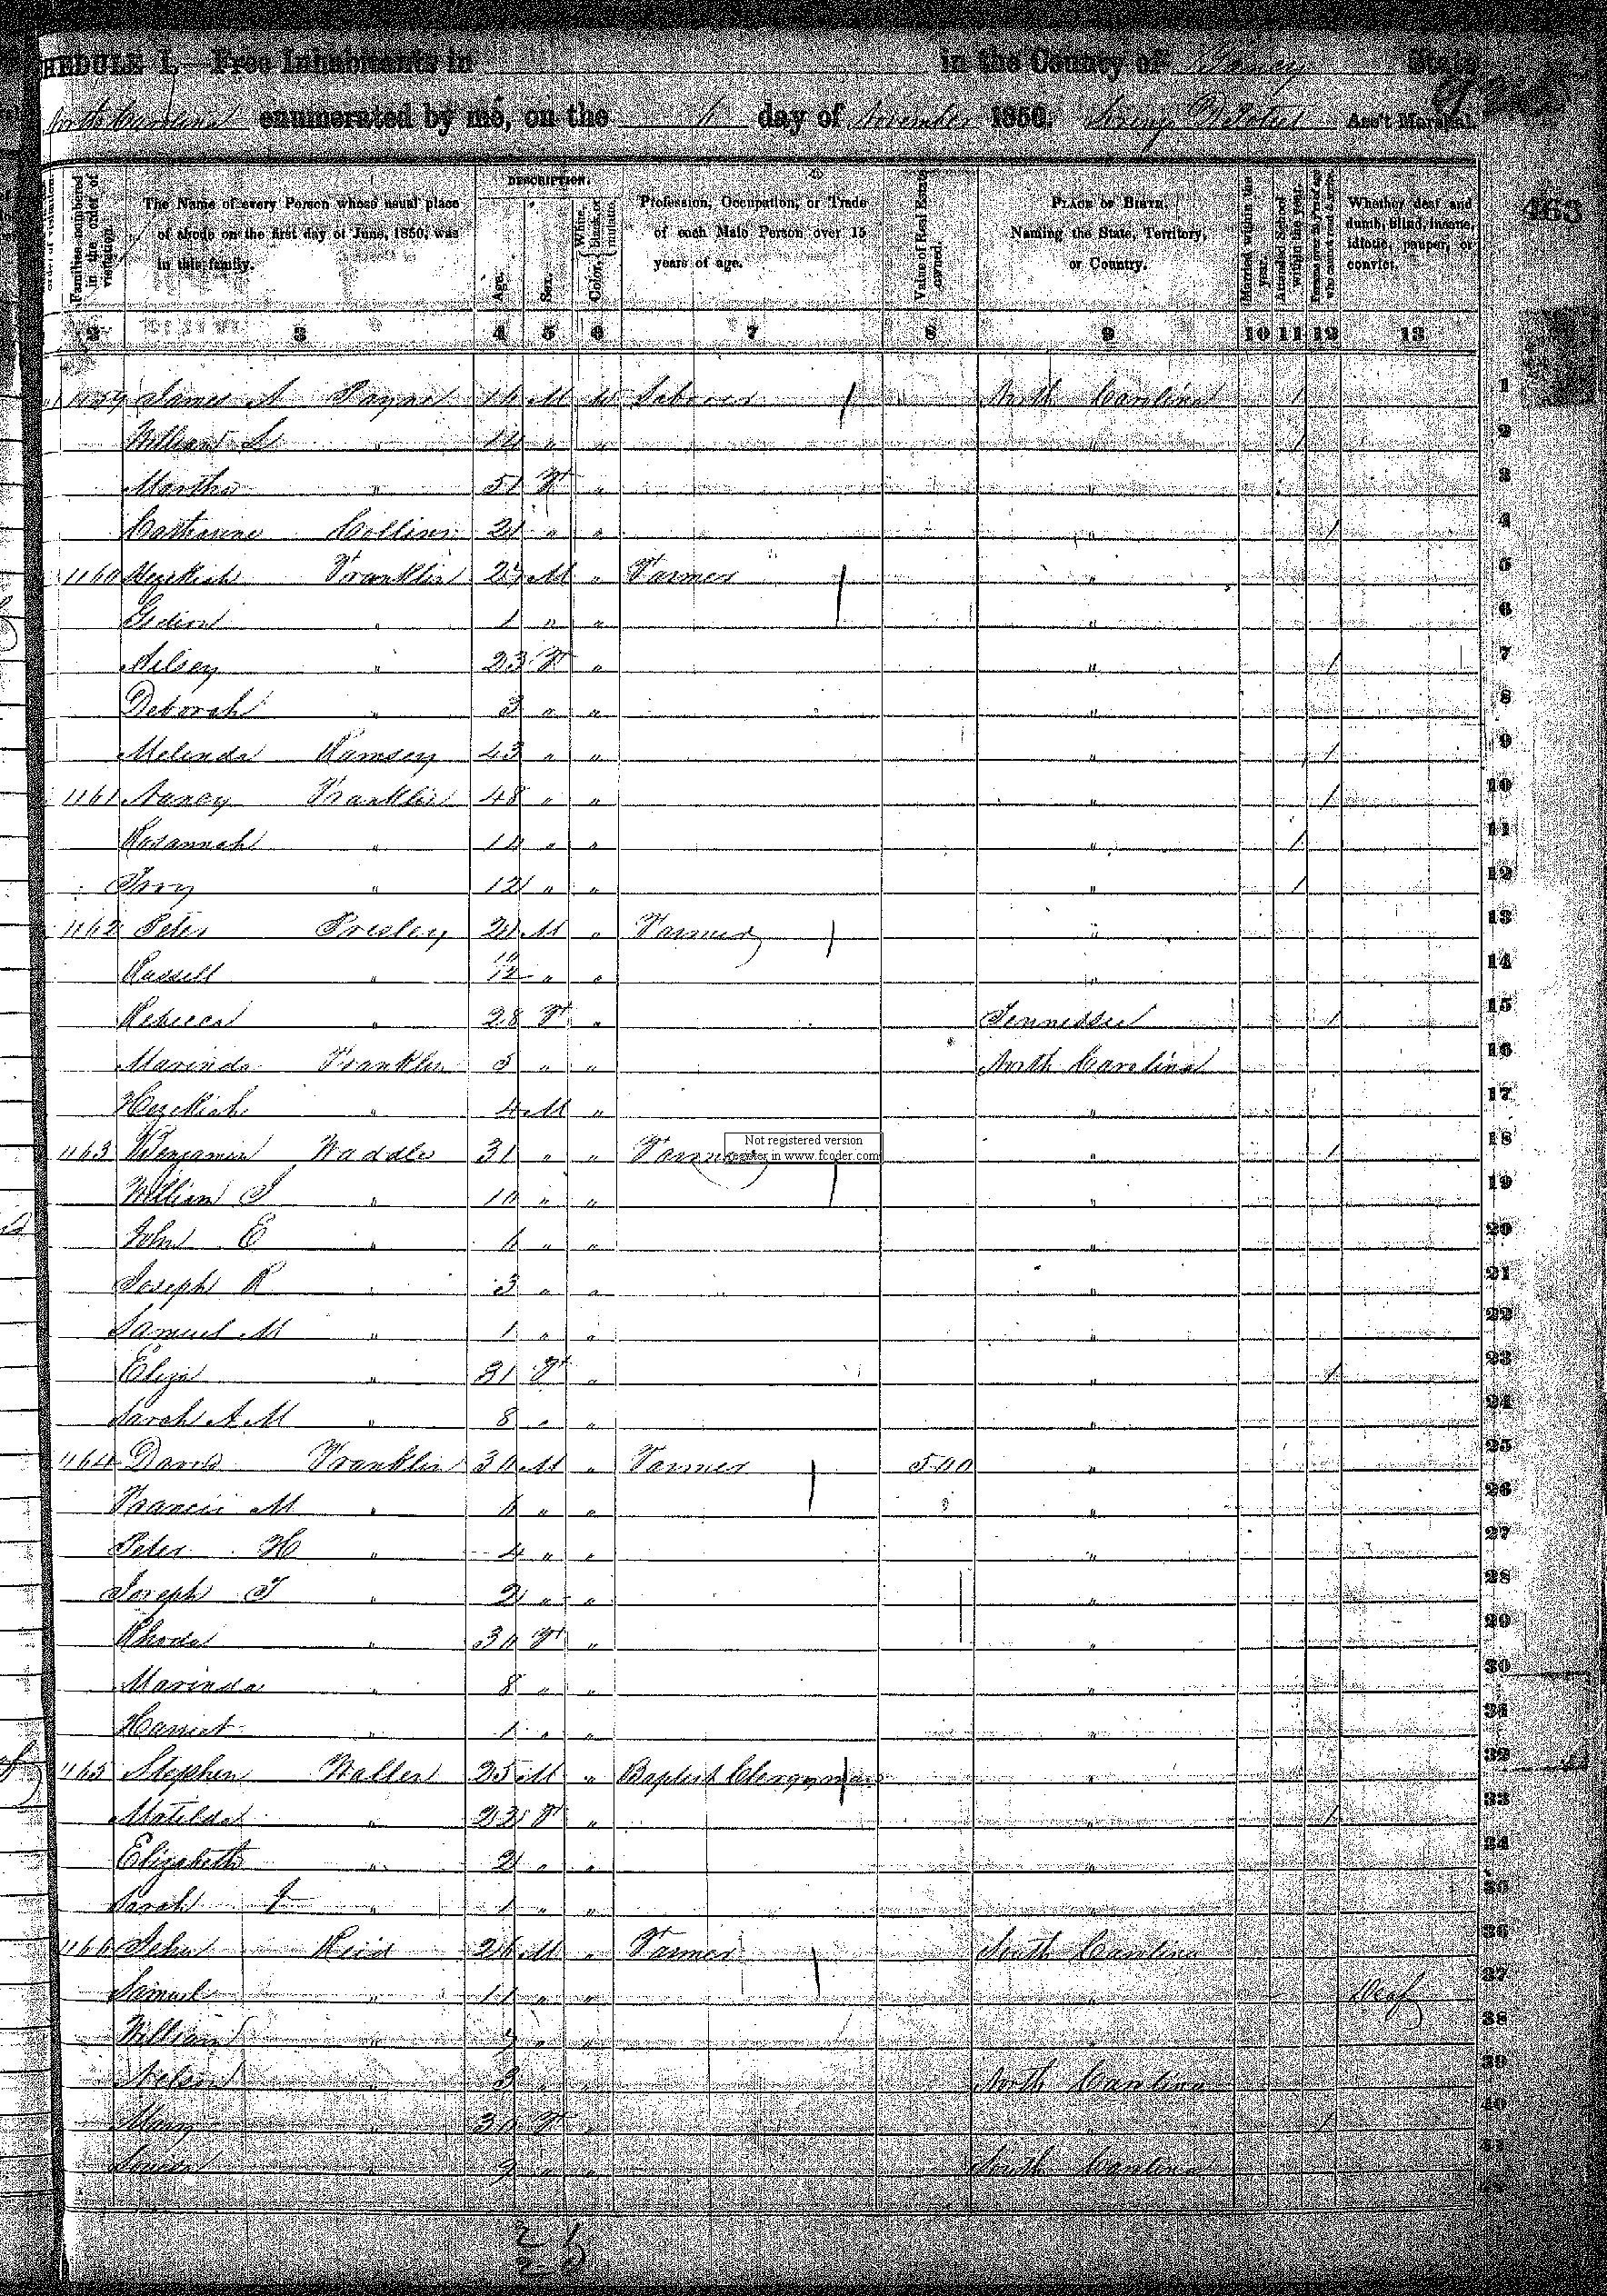 HEDULE I.—Free Inhabitants in in the County of Yancey State
North Carolina enumerated by me, on the 6 day of November 1850. Ass't Marshal.
DESCRIPTION.
Families numbered in the order of visitation.
The Name of every Person whose usual place of abode on the first day of June, 1850, was in this family.
Age.
Sex.
Color, White, black, or mulatto.
Profession, Occupation, or Trade of each Male Person over 15 years of age.
Value of Real Estate owned.
PLACE OF BIRTH, Naming the State, Territory, or Country.
Married within the year.
Attended School within the year.
Persons over 20 y'rs of age who cannot read & write.
Whether deaf and dumb, blind, insane, idiotic, pauper, or convict.
463
2 3 4 5 6 7 8 9 10 11 12 13
1159 James A Payne 16 M W Laborer North Carolina 1 1
William S " 14 " " " 1 2
Martha " 51 F " " 3
Catharine Collins 21 " " " 1 4
1160 Hezekiah Franklin 25 M " Farmer " 5
Gideon " 1 " " " 6
Nelsey " 23 F " " 1 7
Deborah " 3 " " " 8
Melinda Ramsey 43 " " " 1 9
1161 Nancy Franklin 48 " " " 1 10
Rosannah " 14 " " " 1 11
" 12 " " " 1 12
1162 Peter Presley 21 M " Farmer " 13
Russell " 10/12 " " " 14
Rebecca " 28 F " Tennessee 1 15
Marinda Franklin 5 " " North Carolina 16
Hezekiah " 4 M " " 17
1163 Benjamin Waddle 31 " " Farmer " 1 18
Not registered version
register in www.fcoder.com
William J " 10 " " " 19
John E " 6 " " " 20
Joseph R " 3 " " " 21
Samuel M " 1 " " " 22
Eliza " 31 F " " 1 23
Sarah A M " 8 " " " 24
1164 David Franklin 30 M " Farmer 500 " 25
Francis M " 6 " " " 26
Peter H " 4 " " " 27
Joseph J " 2 " " " 28
Rhoda " 30 F " " 29
Marinda " 8 " " " 30
Harriet " 1 " " " 31
1165 Stephen Wallen 25 M " Baptist Clergyman " 32
Matilda " 22 F " " 1 33
Elizabeth " 2 " " " 34
Sarah J " 1 " " " 35
1166 John Reid 26 M " Farmer South Carolina 36
Samuel " 11 " " " Deaf 37
William " " " " 38
Nelson " 3 " " North Carolina 39
Mary " 30 F " " 1 40
" " " South Carolina 41